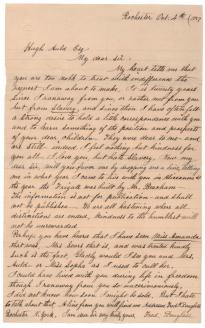 Rochester Oct. 4th 1857
Hugh Auld Esq
My dear sir.
My heart tells me that
you are too noble to treat with indifference the
request I am about to make, It is twenty years
since I ranaway from you, or rather not from you
but from Slavery, and since then I have often felt
a strong desire to hold a little correspondence with you
and to learn something of the position and prospects
of your dear children. They were dear to me – and
are still – indeed I feel nothing but kindness for
you all – I love you, but hate Slavery. Now my
dear Sir, will you favor me by dropping me a line, telling
me in what year I came to live with you in Aliceanna St
the year the Frigate was built by Mr. Beacham
The information is not for publication – and shall
not be published. We are all hastening where all
distinctions are ended, kindness to the humblest will
not be unrewarded
Perhaps you have heard that I have seen Miss Amanda
that was, Mrs Sears that is, and was treated kindly
Such is the fact, Gladly would I see you and Mrs.
Auld or Miss Sopha as I used to call her.
I could have lived with you during life in freedom
though I ranaway from you so unceremoniously,
I did not know how soon I might be sold. But I hate to
talk about that. A line from you will find me Addressed Fredk Douglass
Rochester N. York. I am dear sir very truly yours. Fred: Douglass